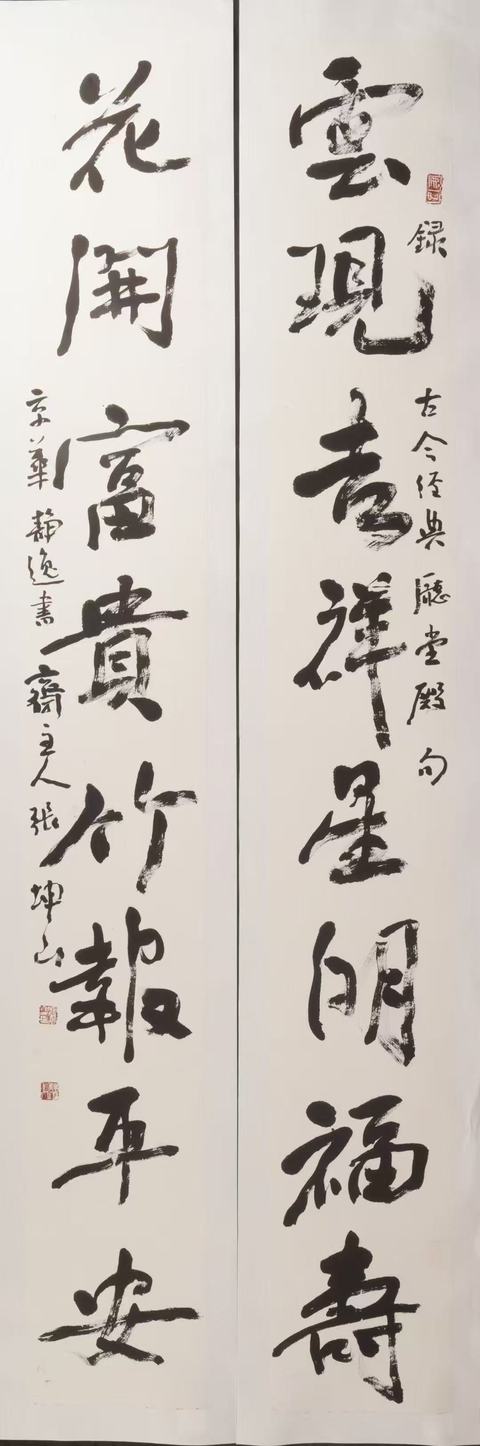 雲現吉祥星明福壽
録古今经典廳堂殿句
花開富貴竹報平安
京華靜逸書齋主人張坤山